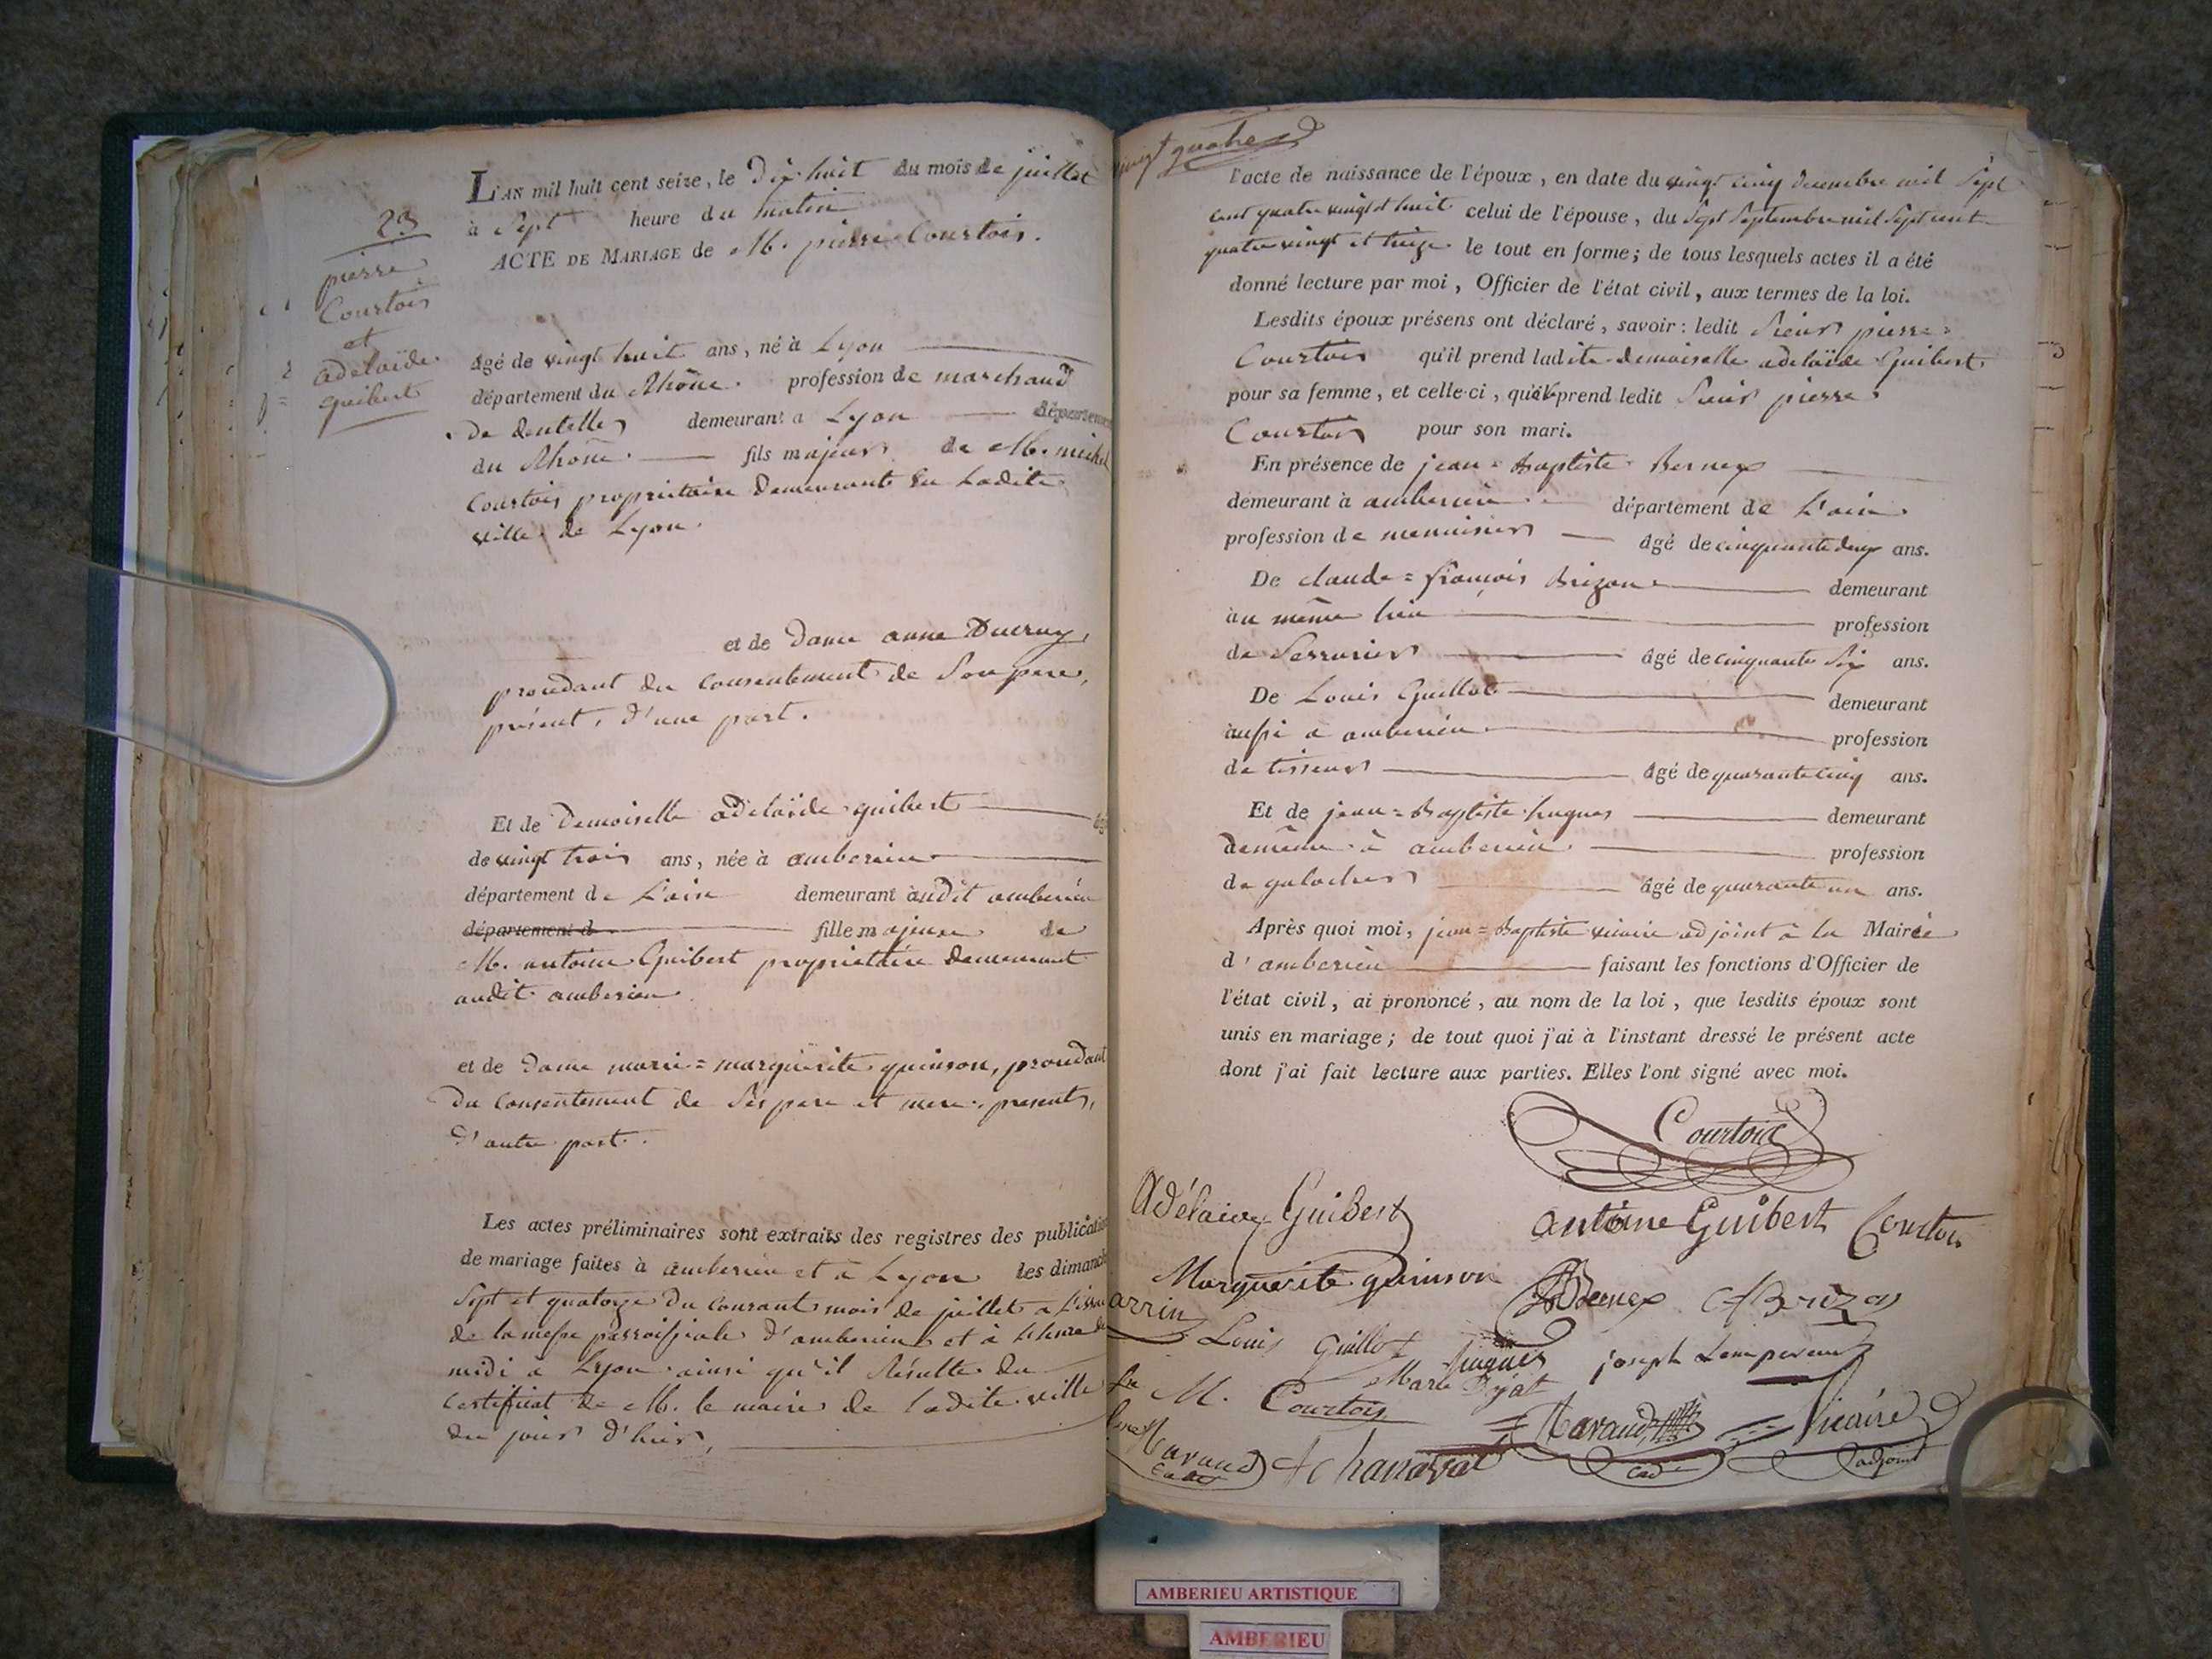 23
pierre
Courtois
et
adelaïde
guibert
L'AN mil huit cent seize, le Dix huit du mois de juillet
à Sept heure du matin
ACTE DE MARIAGE de M. pierre Courtois.
âgé de vingt huit ans, né à Lyon
département du Rhône. profession de marchand
De dentelles demeurant a Lyon département
du Rhône. fils majeur de M. michel
Courtois propriétaire Demeurant En Ladite
ville de Lyon.
et de Dame anne Ducruy,
procédant du Consentement de Son pere,
présent, d'une part.
Et de Demoiselle adelaïde guibert âgé
de vingt trois ans, née à amberieu
département de L'ain demeurant audit amberieu
département d fille majeure de
M. antoine Guibert propriétaire Demeurant
audit amberieu.
et de Dame marie=marguerite quinson, procédant
Du Consentement de Ses pere et mere, presents,
D'autre part.
Les actes préliminaires sont extraits des registres des publication
de mariage faites à amberieu et à Lyon les dimanche
Sept et quatorze du Courant mois de juillet a L'issue
de la messe parroissiale d'amberieu et à L'heure de
midi à Lyon ainsi qu'il Résulte du
Certificat de M. le maire de Ladite ville
du jour d'hier,
vingt quatre
l'acte de naissance de l'époux, en date du vingt cinq decembre mil Sept
cent quatre vingt et huit celui de l'épouse, du Sept Septembre mil Sept cent
quatre vingt et treize le tout en forme; de tous lesquels actes il a été
donné lecture par moi, Officier de l'état civil, aux termes de la loi.
Lesdits époux présens ont déclaré, savoir: ledit Sieur pierre
Courtois qu'il prend ladite demoiselle adelaïde Guibert
pour sa femme, et celle-ci, qu'elle prend ledit Sieur pierre
Courtois pour son mari.
En présence de jean=Baptiste Bernex
demeurant à amberieu département de L'ain
profession de menuisier âgé de cinquante deux ans.
De claude=françois Brizon demeurant
au même lieu profession
de Serrurier âgé de cinquante Six ans.
De Louis Guillot demeurant
aussi a amberieu profession
de tisseur âgé de quarante cinq ans.
Et de jean=Baptiste hugues demeurant
demême à amberieu profession
de galochier âgé de quarante un ans.
Après quoi moi, jean=Baptiste vicaire adjoint à la Mairie
d'amberieu faisant les fonctions d'Officier de
l'état civil, ai prononcé, au nom de la loi, que lesdits époux sont
unis en mariage; de tout quoi j'ai à l'instant dressé le présent acte
dont j'ai fait lecture aux parties. Elles l'ont signé avec moi.
Courtois
Adélaide Guibert antoine Guibert Courtois
Marguerite quinson Bernex
arrin Louis Guillot hugues joseph Lempereur
M. Courtois Marie Ravaud Vicaire
Ravaud Chanavat cadet adjoint
AMBERIEU ARTISTIQUE
AMBERIEU